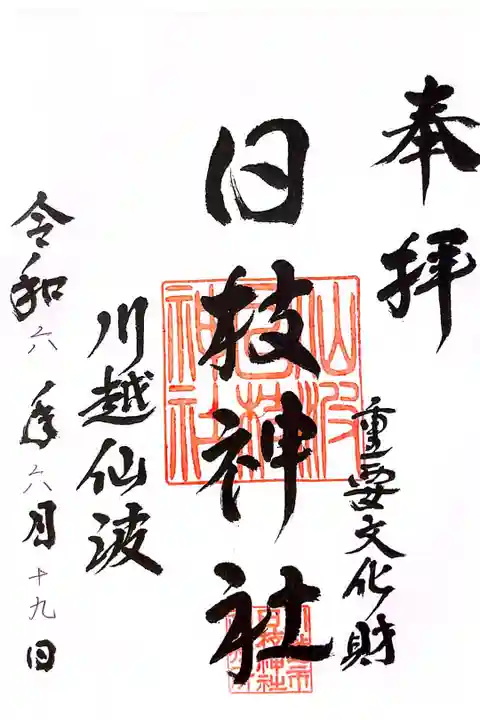 奉拝
重要文化財
日枝神社
仙波
日枝
神社
川越仙波
令和六年六月十九日